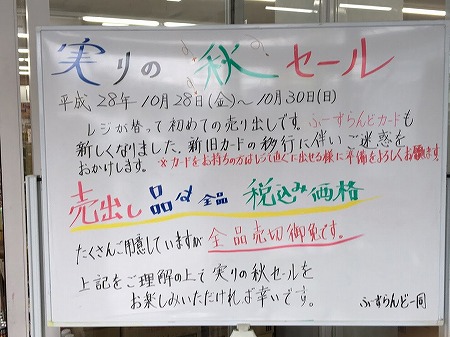 実りの秋セール
平成28年10月28日(金)~10月30日(日)
レジが替って初めての売り出しです。ふーずらんどカードも
新しくなりました。新旧カードの移行に伴いご迷惑を
おかけします。※カードをお持ちの方はレジで直ぐに出せる様に準備をよろしくお願いします
売出し品は全品 税込み価格
たくさんご用意していますが全品売切御免です。
上記をご理解の上で実りの秋セールを
お楽しみいただければ幸いです。
ふーずらんど一同